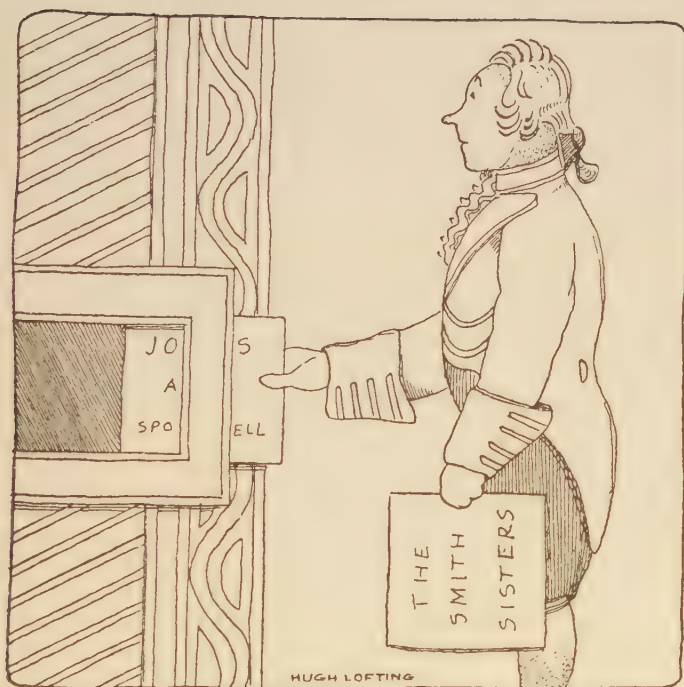 JO S
A
SPO ELL
THE
SMITH
SISTERS
HUGH LOFTING